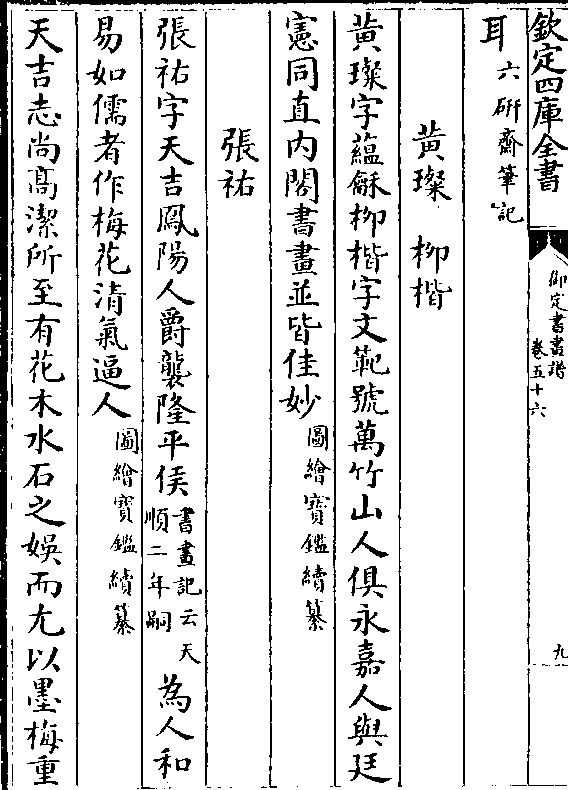 欽定四庫全書
御定書畫譜
卷五十六
九
耳六研齋筆記
黃璨　柳楷
黃璨字蘊龢柳楷字文範號萬竹山人俱永嘉人與廷
憲同直内閣書畫並皆佳妙圖繪寶鑑續纂
張祐
張祐字天吉鳳陽人爵襲隆平侯書畫記云天順二年嗣為人和
易如儒者作梅花清氣逼人圖繪寶鑑續纂
天吉志尚髙潔所至有花木水石之娛而尤以墨梅重